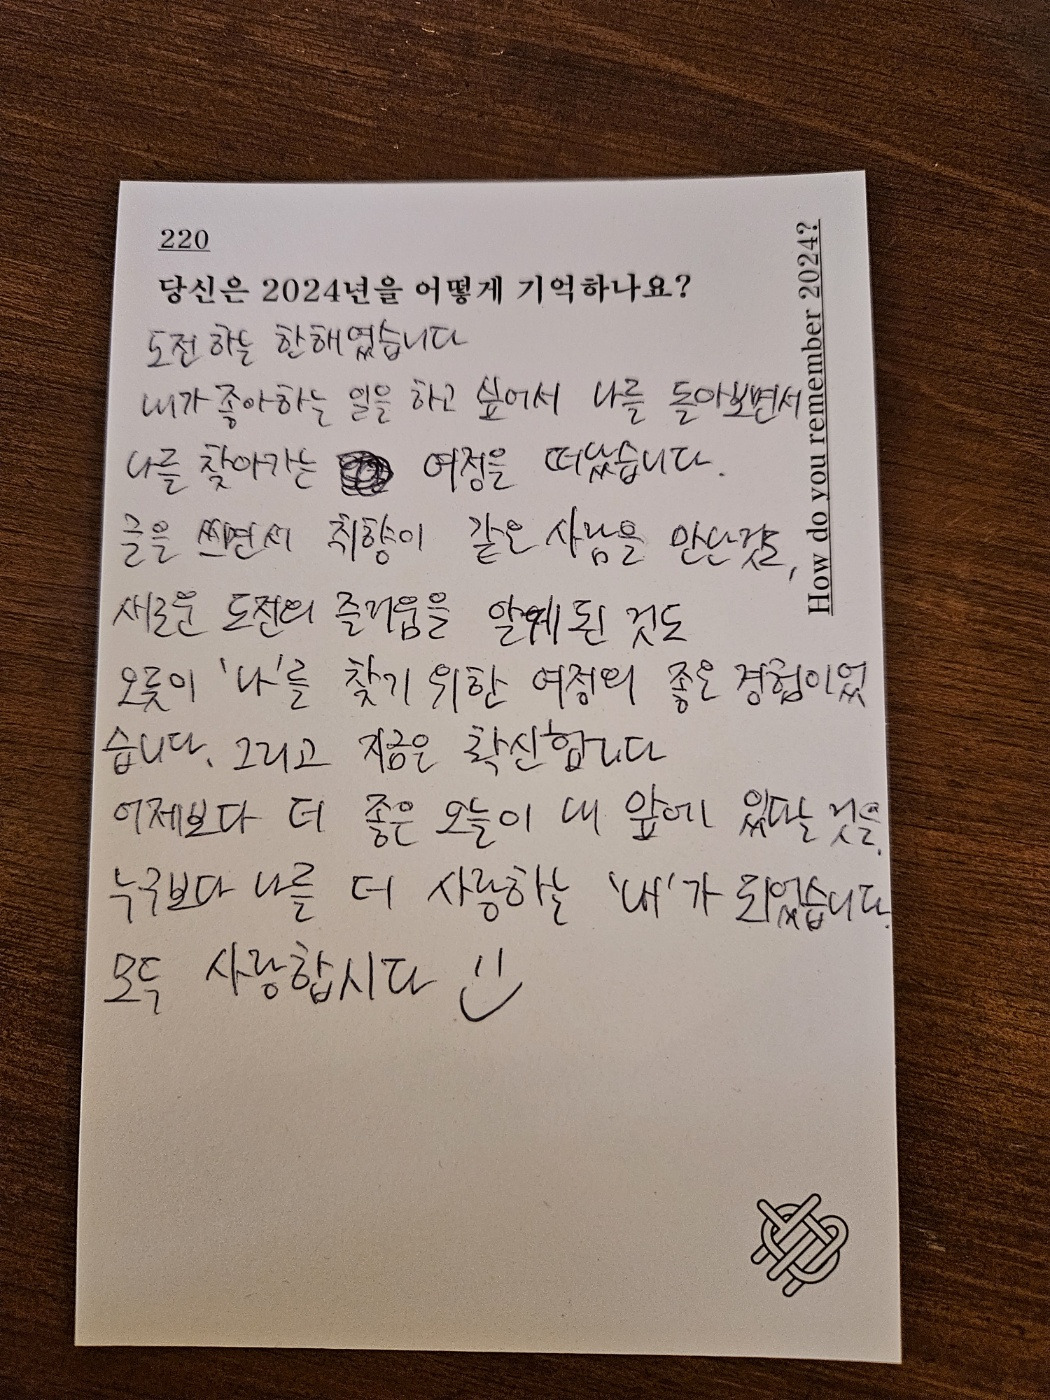 220
당신은 2024년을 어떻게 기억하나요?
How do you remember 2024?
도전 하는 한해였습니다
내가 좋아하는 일을 하고 싶어서 나를 돌아보면서
나를 찾아가는 여정을 떠났습니다.
글을 쓰면서 취향이 같은 사람을 만난것도,
새로운 도전의 즐거움을 알게 된 것도
오롯이 '나'를 찾기 위한 여정의 좋은 경험이었
습니다. 그리고 지금은 확신합니다
어제보다 더 좋은 오늘이 내 앞에 있다는 것을.
누구보다 나를 더 사랑하는 '내'가 되었습니다.
모두 사랑합시다